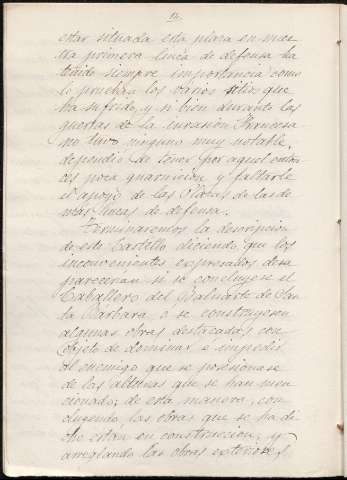 estar situada esta plaza en nues-
tra primera linea de defensa ha
tenido siempre importancia como
lo prueban los varios sitios que
ha sufrido, y si bien durante las
guerras de la invasion Francesa
no tuvo ninguno muy notable,
dependió de tener por aquel enton
ces poca guarnicion y faltarle
el apoyo de las Plazas de las de
más lineas de defensa.
Terminaremos la descripcion
de este Castillo diciendo que los
inconvenientes expresados desa
parecerian si se concluyese el
Caballero del Baluarte de San
ta Bárbara o se construyesen
algunas obras destacadas con
objeto de dominar e impedir
al enemigo que se posesionase
de las alturas que se han men
cionado; de esta manera, con
cluyendo las obras que se ha di
cho estan en construccion, y
arreglando las obras exteriores